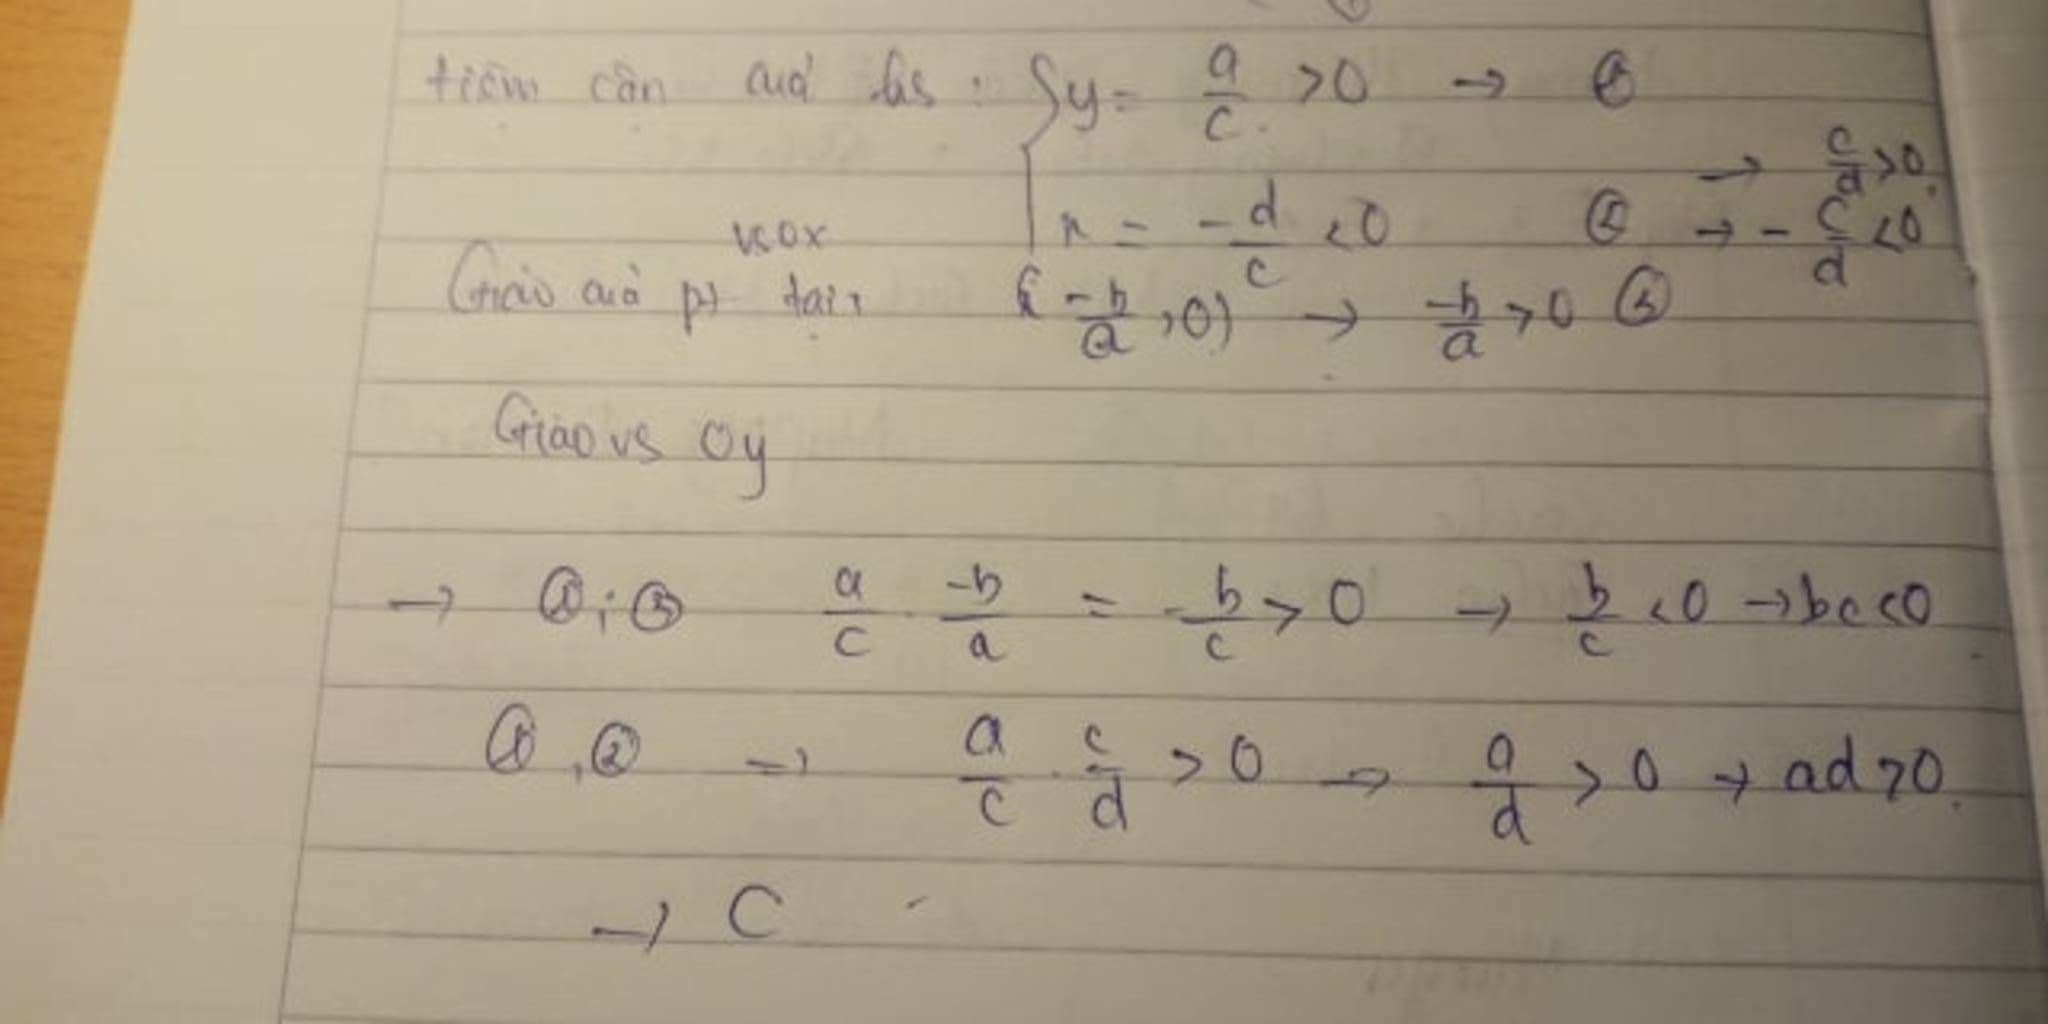 tiệm cận củả hs : { y = a/c > 0 → ①
→ c/d > 0
x = -d/c < 0 ② → -c/d < 0
vs Ox
Giao củả pt tại: (-b/a, 0) → -b/a > 0 ③
Giao vs Oy
→ ①; ③ a/c . -b/a = -b/c > 0 → b/c < 0 → bc < 0
①, ② → a/c . c/d > 0 → a/d > 0 → ad > 0.
→ C